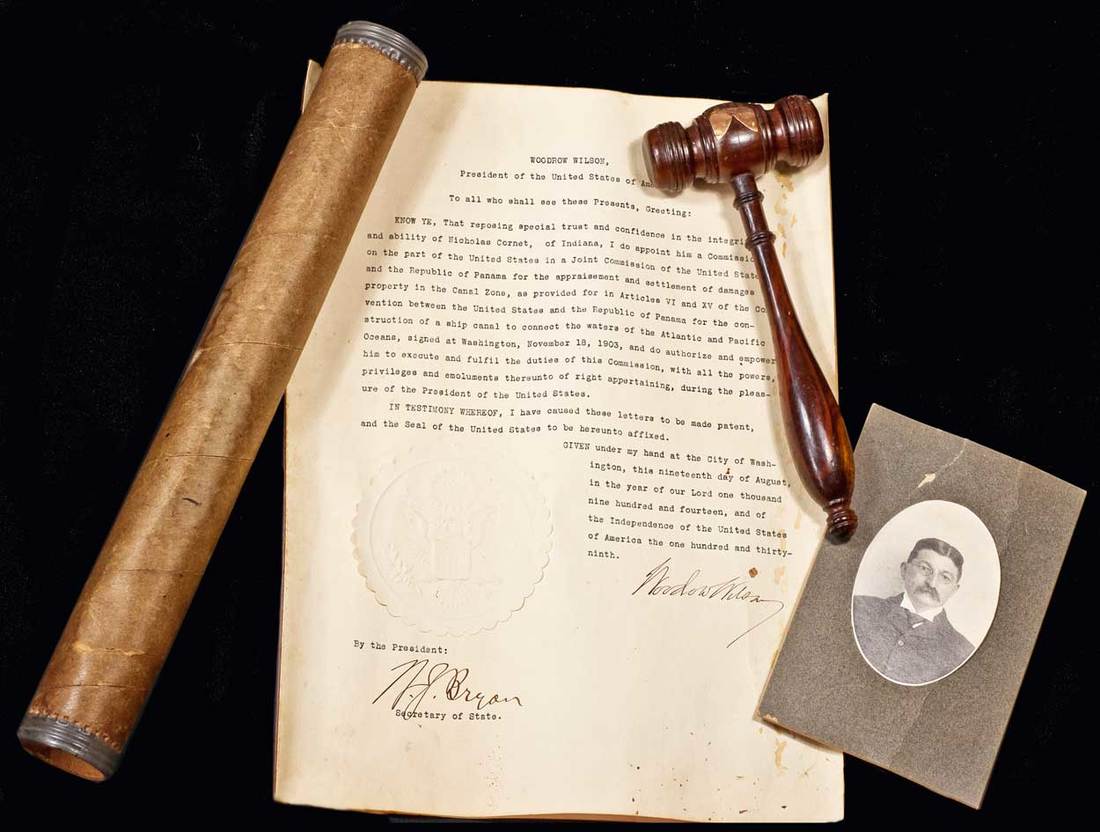 WOODROW WILSON,
President of the United States of
To all who shall see these Presents, Greeting:
KNOW YE, That reposing special trust and confidence in the
and ability of Nicholas Cornet, of Indiana, I do appoint him a
on the part of the United States in a Joint Commission of the United
and the Republic of Panama for the appraisement and settlement of damages
property in the Canal Zone, as provided for in Articles VI and XV of the
vention between the United States and the Republic of Panama for the con-
struction of a ship canal to connect the waters of the Atlantic and Pacific
Oceans, signed at Washington, November 18, 1903, and do authorize and empower
him to execute and fulfil the duties of this Commission, with all the powers,
privileges and emoluments thereunto of right appertaining, during the pleas-
ure of the President of the United States.
IN TESTIMONY WHEREOF, I have caused these letters to be made patent,
and the Seal of the United States to be hereunto affixed.
GIVEN under my hand at the City of Wash-
ington, this nineteenth day of August,
in the year of our Lord one thousand
nine hundred and fourteen, and of
the Independence of the United States
of America the one hundred and thirty-
ninth.
Woodrow Wilson
By the President:
W. J. Bryan
Secretary of State.